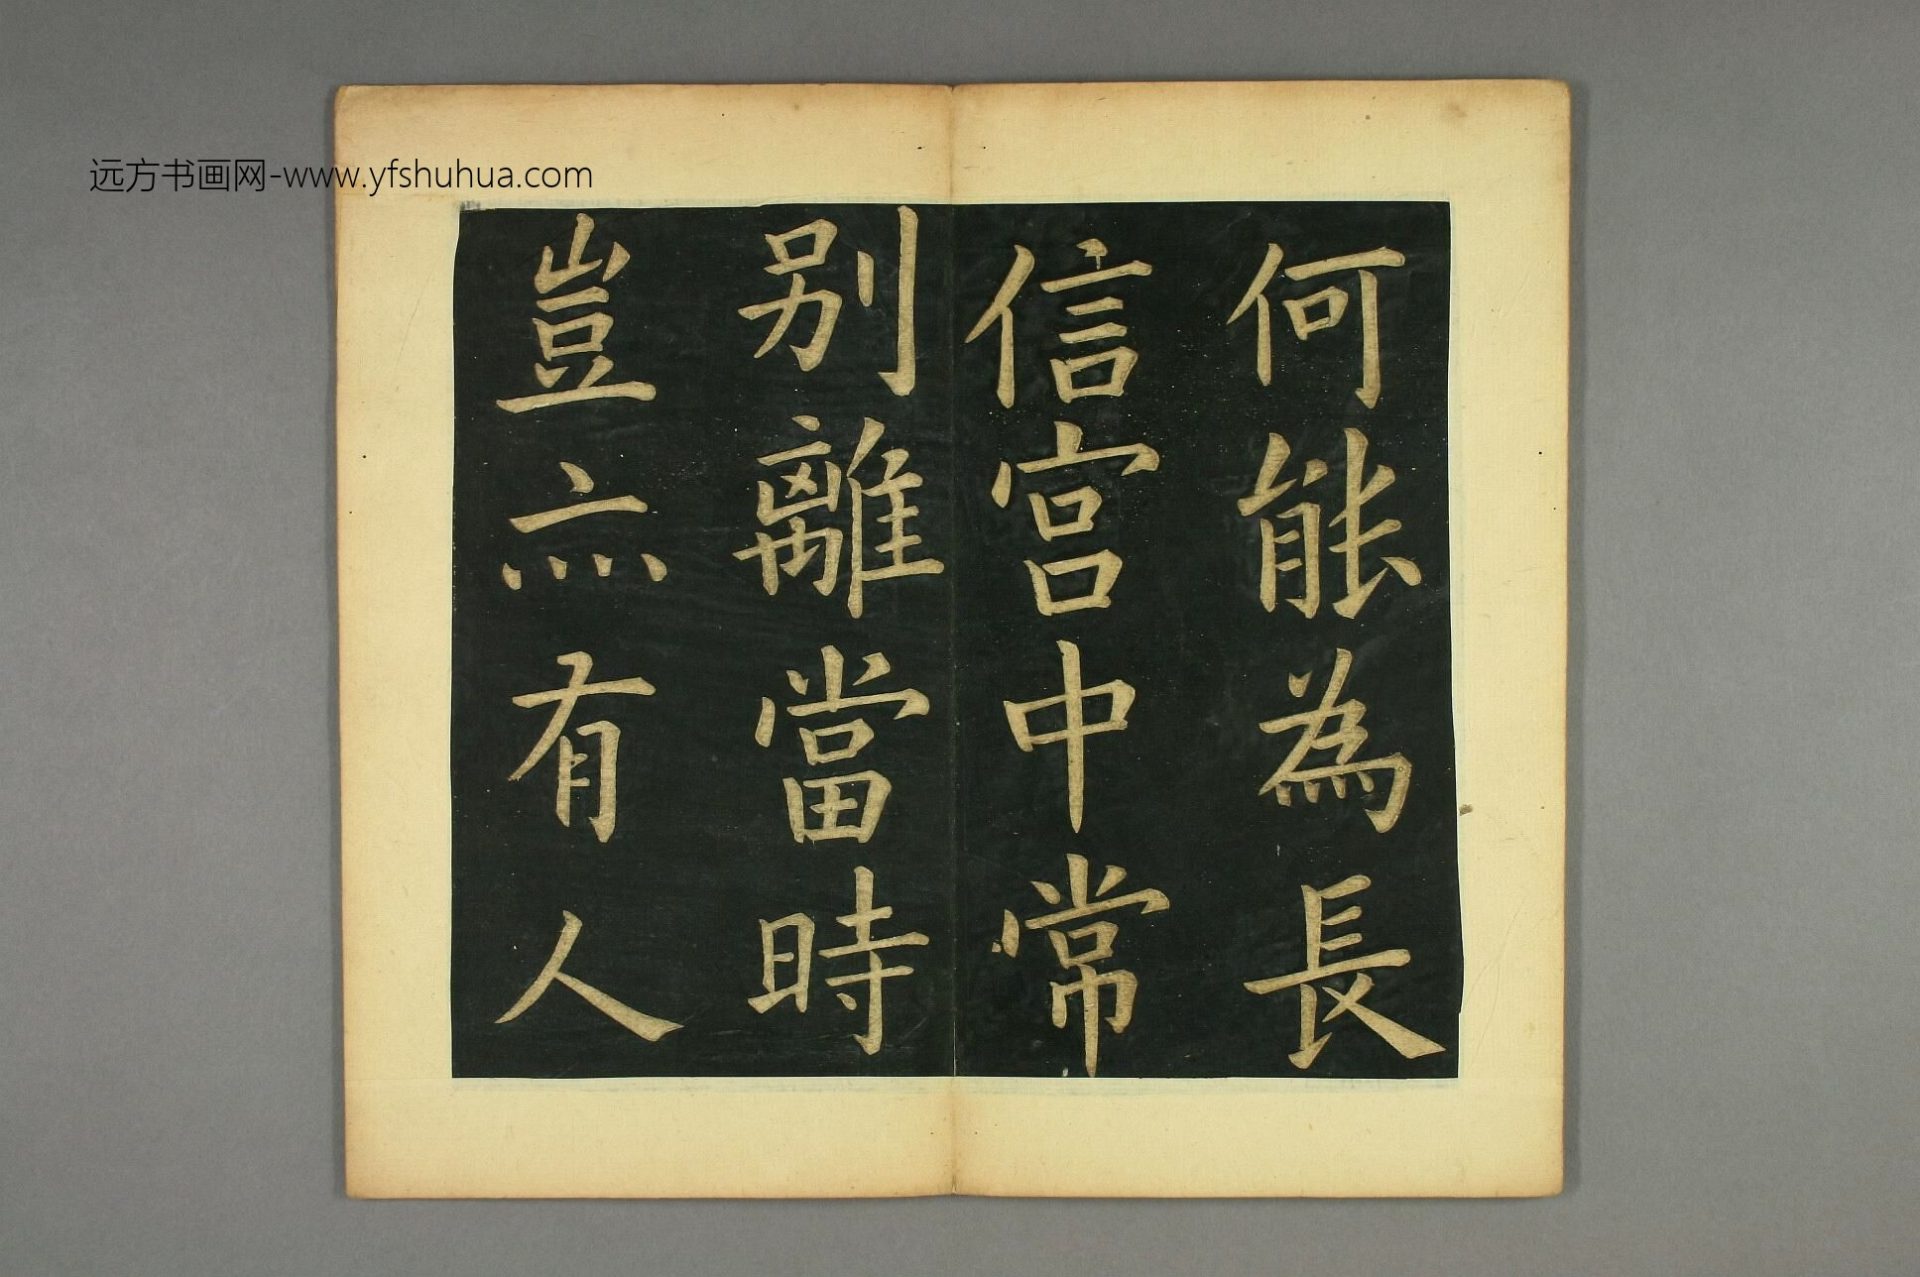 远方书画网-www.yfshuhua.com
何能為長
信宫中常
别離當時
豈亦有人